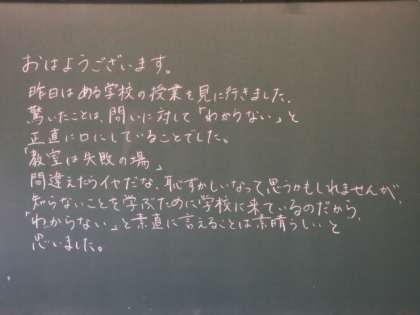 おはようございます。
昨日はある学校の授業を見に行きました.
驚いたことは、問いに対して「わからない」と
正直に口にしていることでした。
「教室は失敗の場」
間違えたらイヤだな、恥ずかしいなって思うかもしれませんが、
知らないことを学ぶために学校に来ているのだから、
「わからない」と素直に言えることは素晴らしいと
思いました。